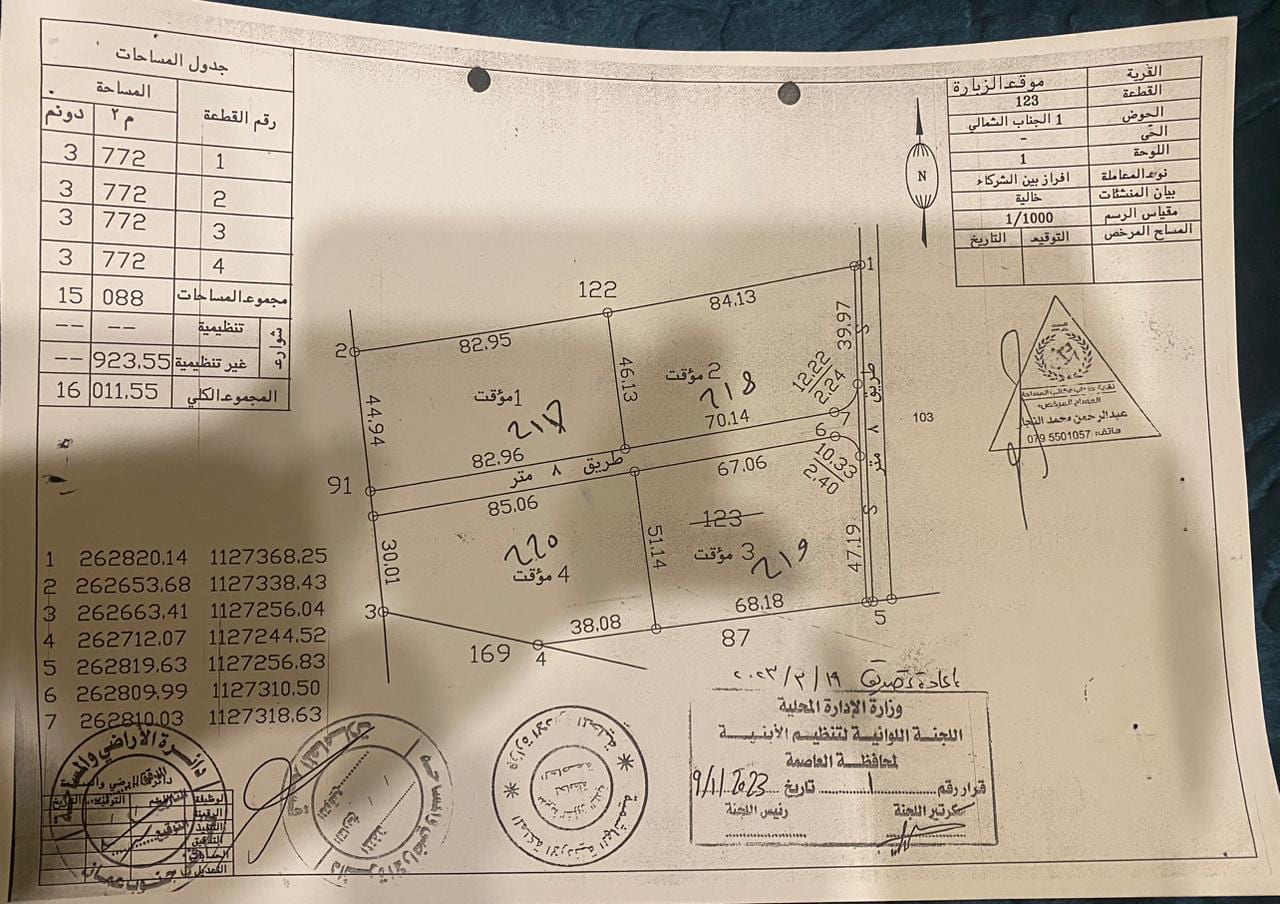 جدول المساحات
رقم القطعة المساحة
م٢ دونم
1 772 3
2 772 3
3 772 3
4 772 3
مجموع المساحات 088 15
شوارع تنظيمية -- --
غير تنظيمية 923.55 --
المجموع الكلي 011.55 16
القرية موقع الزبارة
القطعة 123
الحوض 1 الجناب الشمالي
الحي -
اللوحة 1
نوع المعاملة افراز بين الشركاء
بيان المنشئات خالية
مقياس الرسم 1/1000
المساح المرخص التوقيع التاريخ
N
122
1
84.13
82.95
2
39.97
S
46.13
2 مؤقت
218
12.22
2.24
1 مؤقت
217
44.94
70.14
7
طريق ٨ متر
103
6
82.96
طريق ٨ متر
67.06
10.33
2.40
91
85.06
S
123
3 مؤقت
219
220
4 مؤقت
51.14
47.19
30.01
68.18
5
3
38.08
87
169
4
المساح المرخص
عبدالرحمن محمد النجار
هاتف: 079 5501057
1 262820.14 1127368.25
2 262653.68 1127338.43
3 262663.41 1127256.04
4 262712.07 1127244.52
5 262819.63 1127256.83
6 262809.99 1127310.50
7 262810.03 1127318.63
اعادة تصديق ١٩/٣/٢٠٢٣
وزارة الإدارة المحلية
اللجنة اللوائية لتنظيم الأبنية
لمحافظة العاصمة
قرار رقم 1 تاريخ 9/1/2023
سكرتير اللجنة رئيس اللجنة
دائرة الأراضي والمساحة
جنوب عمان
دائرة الأراضي والمساحة
المملكة الاردنية الهاشمية
وزارة الادارة المحلية